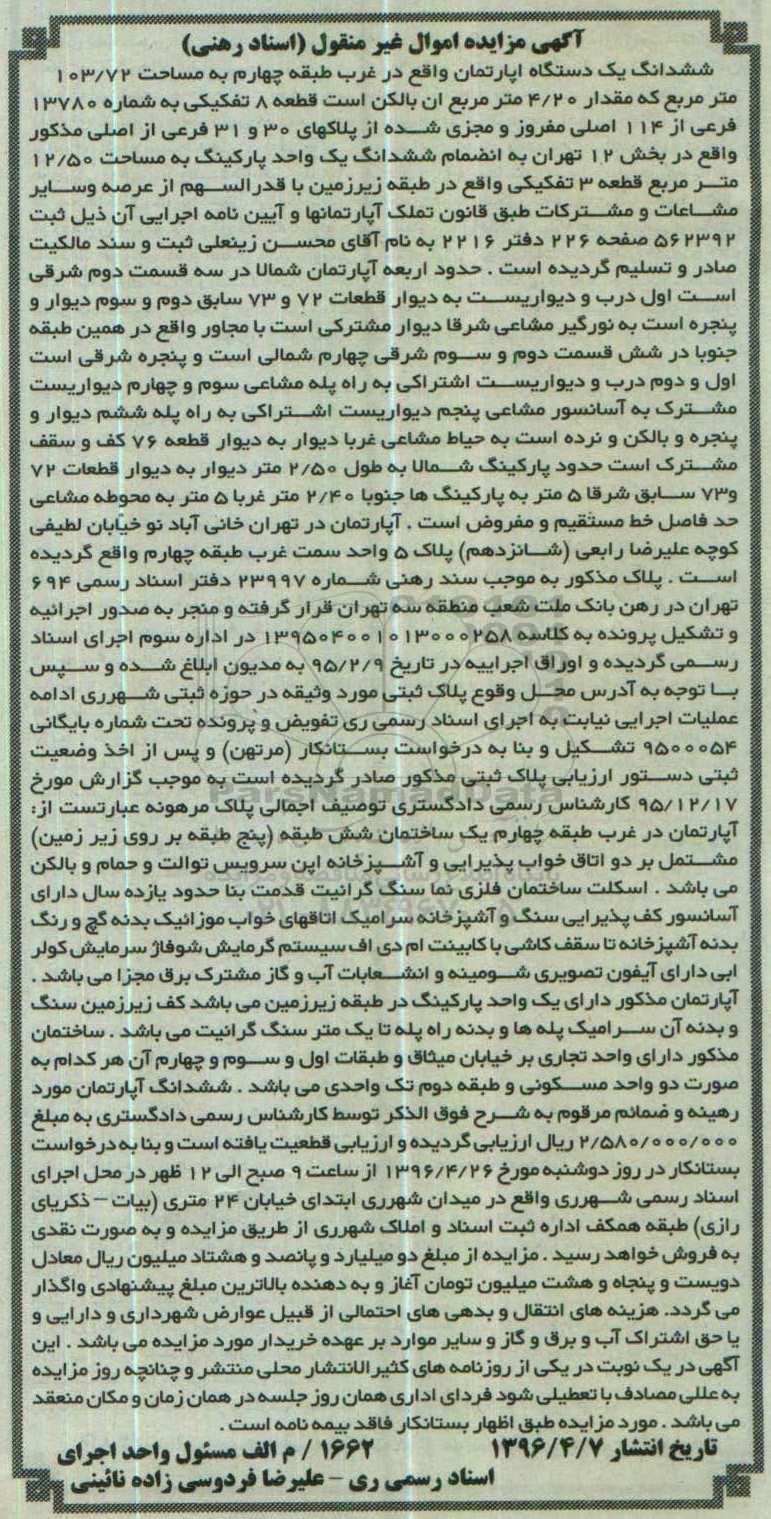 آگهی مزایده اموال غیر منقول (اسناد رهنی)
ششدانگ یک دستگاه اپارتمان واقع در غرب طبقه چهارم به مساحت ۱۰۳/۷۲
متر مربع که مقدار ۴/۲۰ متر مربع ان بالکن است قطعه ۸ تفکیکی به شماره ۱۳۷۸۰
فرعی از ۱۱۴ اصلی مفروز و مجزی شده از پلاکهای ۳۰ و ۳۱ فرعی از اصلی مذکور
واقع در بخش ۱۲ تهران به انضمام ششدانگ یک واحد پارکینگ به مساحت ۱۲/۵۰
متر مربع قطعه ۳ تفکیکی واقع در طبقه زیرزمین با قدرالسهم از عرصه وسایر
مشاعات و مشترکات طبق قانون تملک آپارتمانها و آیین نامه اجرایی آن ذیل ثبت
۵۶۲۳۹۲ صفحه ۲۲۶ دفتر ۲۲۱۶ به نام آقای محسن زینعلی ثبت و سند مالکیت
صادر و تسلیم گردیده است . حدود اربعه آپارتمان شمالا در سه قسمت دوم شرقی
است اول درب و دیواریست به دیوار قطعات ۷۲ و ۷۳ سابق دوم و سوم دیوار و
پنجره است به نورگیر مشاعی شرقا دیوار مشترکی است با مجاور واقع در همین طبقه
جنوبا در شش قسمت دوم و سوم شرقی چهارم شمالی است و پنجره شرقی است
اول و دوم درب و دیواریست اشتراکی به راه پله مشاعی سوم و چهارم دیواریست
مشترک به آسانسور مشاعی پنجم دیواریست اشتراکی به راه پله ششم دیوار و
پنجره و بالکن و نرده است به حیاط مشاعی غربا دیوار به دیوار قطعه ۷۶ کف و سقف
مشترک است حدود پارکینگ شمالا به طول ۲/۵۰ متر دیوار به دیوار قطعات ۷۲
و۷۳ سابق شرقا ۵ متر به پارکینگ ها جنوبا ۲/۴۰ متر غربا ۵ متر به محوطه مشاعی
حد فاصل خط مستقیم و مفروض است . آپارتمان در تهران خانی آباد نو خیابان لطیفی
کوچه علیرضا رابعی (شانزدهم) پلاک ۵ واحد سمت غرب طبقه چهارم واقع گردیده
است . پلاک مذکور به موجب سند رهنی شماره ۲۳۹۹۷ دفتر اسناد رسمی ۶۹۴
تهران در رهن بانک ملت شعب منطقه سه تهران قرار گرفته و منجر به صدور اجرائیه
و تشکیل پرونده به کلاسه ۱۳۹۵۰۴۰۰۱۰۱۳۰۰۰۲۵۸ در اداره سوم اجرای اسناد
رسمی گردیده و اوراق اجراییه در تاریخ ۹۵/۲/۹ به مدیون ابلاغ شده و سپس
با توجه به آدرس محل وقوع پلاک ثبتی مورد وثیقه در حوزه ثبتی شهرری ادامه
عملیات اجرایی نیابت به اجرای اسناد رسمی ری تفویض و پرونده تحت شماره بایگانی
۹۵۰۰۰۵۴ تشکیل و بنا به درخواست بستانکار (مرتهن) و پس از اخذ وضعیت
ثبتی دستور ارزیابی پلاک ثبتی مذکور صادر گردیده است به موجب گزارش مورخ
۹۵/۱۲/۱۷ کارشناس رسمی دادگستری توصیف اجمالی پلاک مرهونه عبارتست از:
آپارتمان در غرب طبقه چهارم یک ساختمان شش طبقه (پنج طبقه بر روی زیر زمین)
مشتمل بر دو اتاق خواب پذیرایی و آشپزخانه اپن سرویس توالت و حمام و بالکن
می باشد . اسکلت ساختمان فلزی نما سنگ گرانیت قدمت بنا حدود یازده سال دارای
آسانسور کف پذیرایی سنگ و آشپزخانه سرامیک اتاقهای خواب موزائیک بدنه گچ و رنگ
بدنه آشپزخانه تا سقف کاشی با کابینت ام دی اف سیستم گرمایش شوفاژ سرمایش کولر
ابی دارای آیفون تصویری شومینه و انشعابات آب و گاز مشترک برق مجزا می باشد .
آپارتمان مذکور دارای یک واحد پارکینگ در طبقه زیرزمین می باشد کف زیرزمین سنگ
و بدنه آن سرامیک پله ها و بدنه راه پله تا یک متر سنگ گرانیت می باشد . ساختمان
مذکور دارای واحد تجاری بر خیابان میثاق و طبقات اول و سوم و چهارم آن هر کدام به
صورت دو واحد مسکونی و طبقه دوم تک واحدی می باشد . ششدانگ آپارتمان مورد
رهینه و ضمائم مرقوم به شرح فوق الذکر توسط کارشناس رسمی دادگستری به مبلغ
۲/۵۸۰/۰۰۰/۰۰۰ ریال ارزیابی گردیده و ارزیابی قطعیت یافته است و بنا به درخواست
بستانکار در روز دوشنبه مورخ ۱۳۹۶/۴/۲۶ از ساعت ۹ صبح الی ۱۲ ظهر در محل اجرای
اسناد رسمی شهرری واقع در میدان شهرری ابتدای خیابان ۲۴ متری (بیات – ذکریای
رازی) طبقه همکف اداره ثبت اسناد و املاک شهرری از طریق مزایده و به صورت نقدی
به فروش خواهد رسید . مزایده از مبلغ دو میلیارد و پانصد و هشتاد میلیون ریال معادل
دویست و پنجاه و هشت میلیون تومان آغاز و به دهنده بالاترین مبلغ پیشنهادی واگذار
می گردد. هزینه های انتقال و بدهی های احتمالی از قبیل عوارض شهرداری و دارایی و
یا حق اشتراک آب و برق و گاز و سایر موارد بر عهده خریدار مورد مزایده می باشد . این
آگهی در یک نوبت در یکی از روزنامه های کثیرالانتشار محلی منتشر و چنانچه روز مزایده
به عللی مصادف با تعطیلی شود فردای اداری همان روز جلسه در همان زمان و مکان منعقد
می باشد . مورد مزایده طبق اظهار بستانکار فاقد بیمه نامه است .
تاریخ انتشار ۱۳۹۶/۴/۷ ۱۶۶۲ / م الف مسئول واحد اجرای
اسناد رسمی ری – علیرضا فردوسی زاده نائینی
ParsNamadData